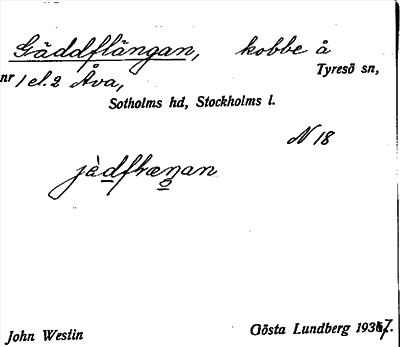 Gäddflängan, kobbe å
nr 1 el. 2 Åva, Tyresö sn,
Sotholms hd, Stockholms l.
N 18
John Westin Gösta Lundberg 1937.